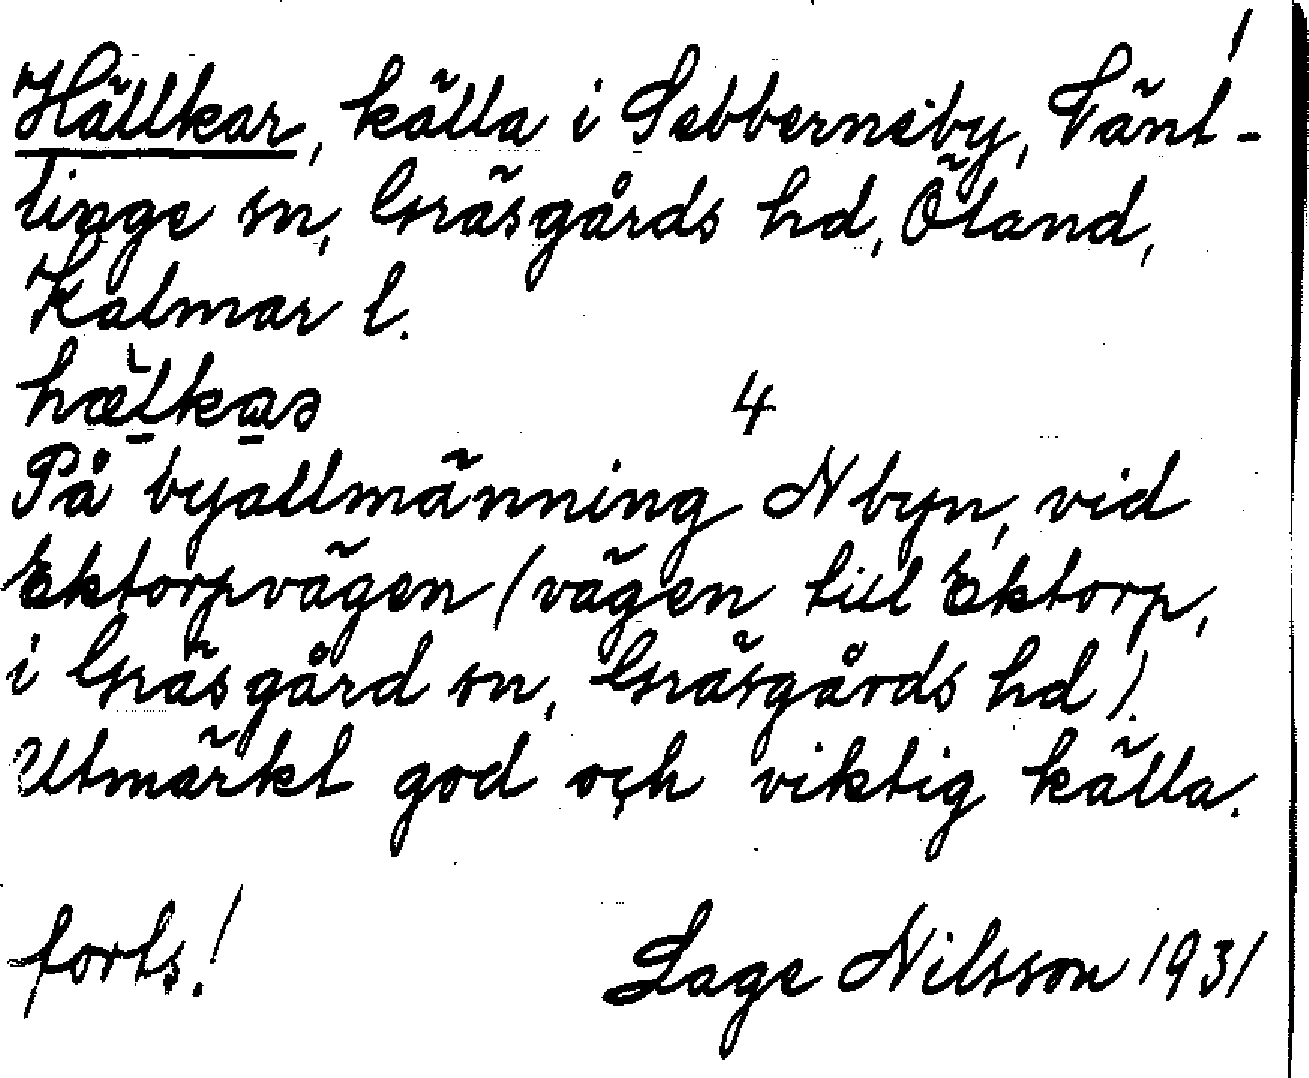 Hällkar, källa i Sebberneby, Vänt-
linge sn, Gräsgårds hd, Öland,
Kalmar l.
4
På byallmänning N byn, vid
Ektorpvägen (vägen till Ektorp,
i Gräsgård sn, Gräsgårds hd).
Utmärkt god och viktig källa.
forts! Sage Nilsson 1931